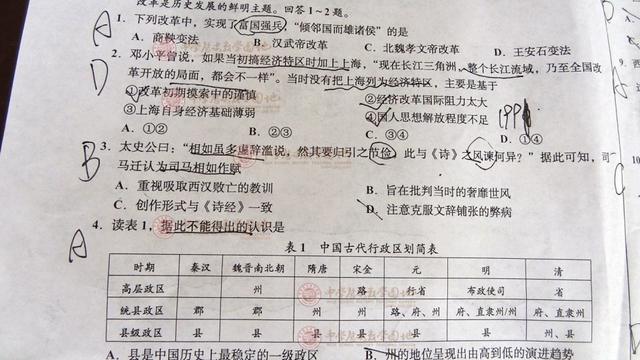 改革是历史发展的鲜明主题。回答1~2题。
A 1. 下列改革中，实现了富国强兵，“倾邻国而雄诸侯”的是
A. 商鞅变法 B. 汉武帝改革 C. 北魏孝文帝改革 D. 王安石变法
D 2. 邓小平曾说，如果当初搞经济特区时加上上海，“现在长江三角洲、整个长江流域，乃至全国改
革开放的局面，都会不一样”。当时没有把上海列为经济特区，主要是基于
①改革初期摸索中的谨慎 ②经济改革国际阻力太大
③上海自身经济基础薄弱 ④国人思想解放程度不足
A. ①② B. ②③ C. ③④ D. ①④
B 3. 太史公曰：“相如虽多虚辞滥说，然其要归引之节俭，此与《诗》之风谏何异？”据此可知，司
马迁认为司马相如作赋
A. 重视吸取西汉败亡的教训 B. 旨在批判当时的奢靡世风
C. 创作形式与《诗经》一致 D. 注意克服文辞铺张的弊病
A 4. 读表1，据此不能得出的认识是
表1 中国古代行政区划简表
时期 秦汉 魏晋南北朝 隋唐 宋金 元 明 清
高层政区 州 路 行省 布政使司 省
统县政区 郡 郡 州 州 路、府、州 府、直隶州/州 府、直隶州
县级政区 县 县 县 县 县 县 县
A. 县是中国历史上最稳定的一级政区 B. 州的地位呈现出由高到低的演进趋势